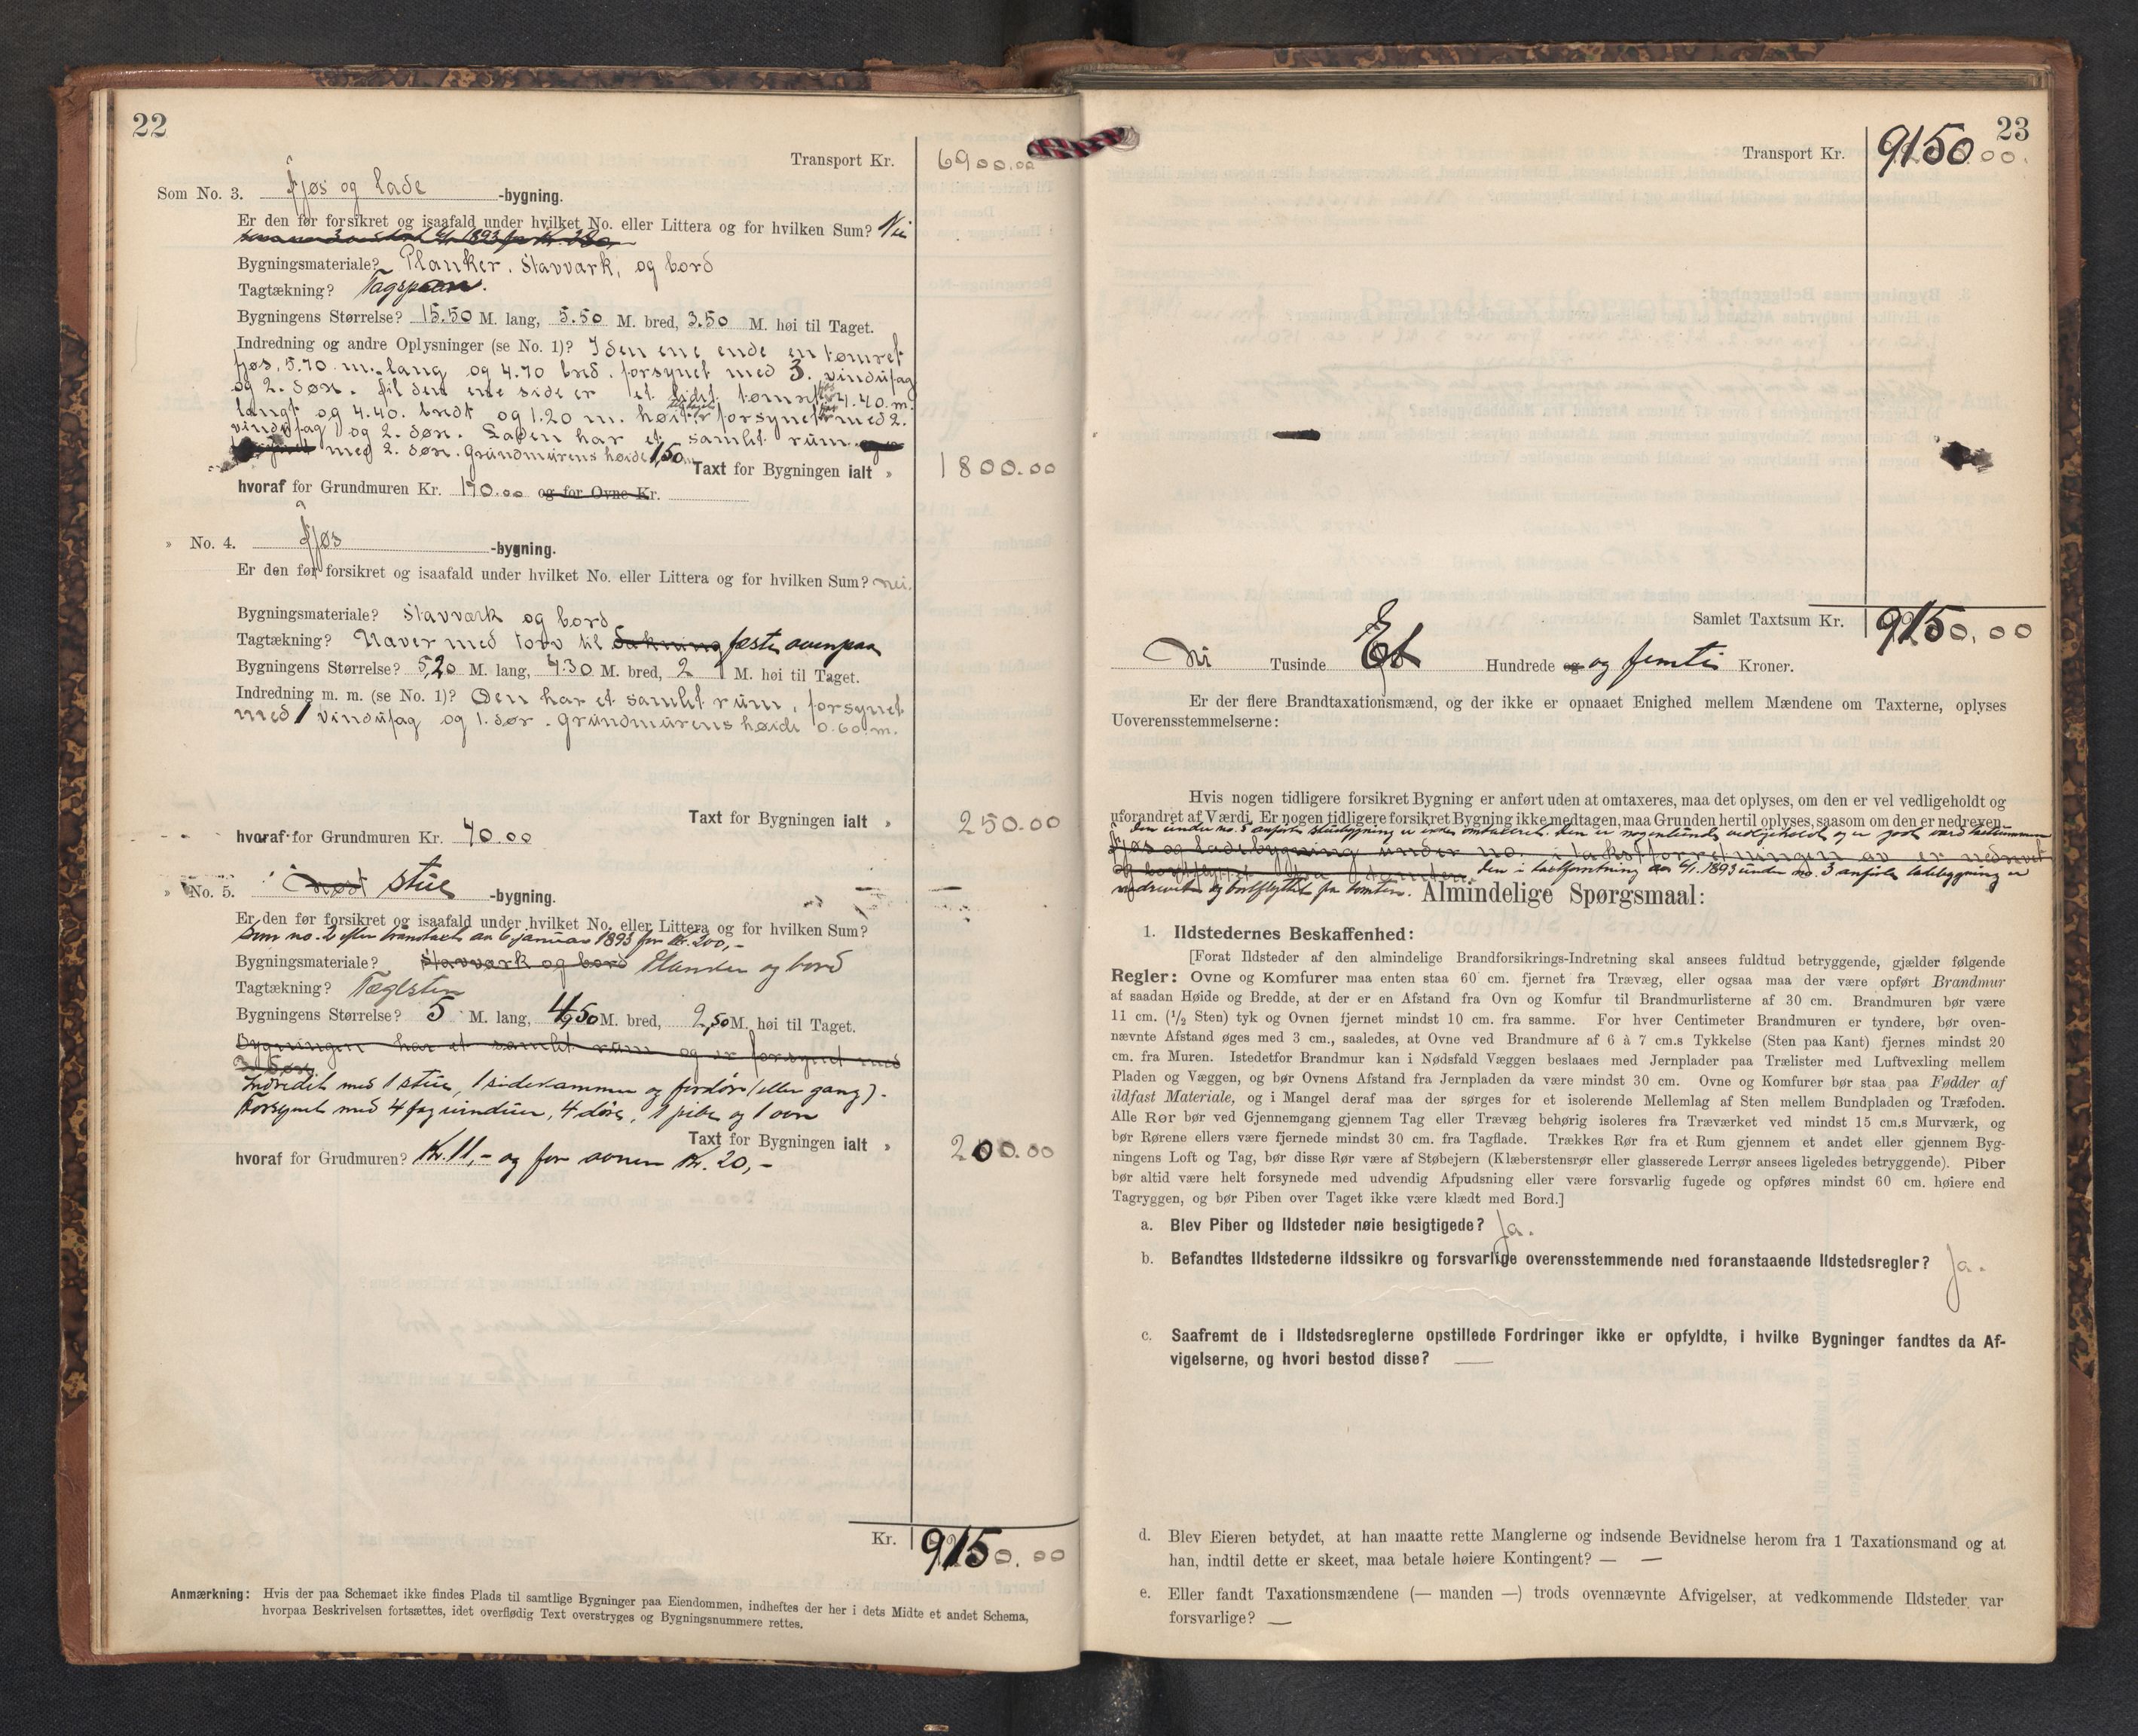 22
Transport Kr. 6900.00
Som No. 3. Fjøs og lade -bygning.
Er den før forsikret og isaafald under hvilket No. eller Littera og for hvilken Sum? Nei
Bygningsmateriale? Planker. Stavværk, og bord
Tagtækning? Tagspaan.
Bygningens Størrelse? 15.50 M. lang, 5.50 M. bred, 3.50 M. høi til Taget.
Indredning og andre Oplysninger (se No. 1)? I den ene ende en tømret
fjøs, 5.70 m. lang og 4.70 bred. forsynet med 3. vindufag
og 2. Dør. til den ene side er et lidet tømret 4.40. m.
langt og 4.40. bredt og 1.20 m. høit forsynet med 2.
vindufag og 2. dør. Laden har et samlet rum
med 2. dør. Grundmurens høide 1,50 m
Taxt for Bygningen ialt » 1800.00
hvoraf for Grundmuren Kr. 170.00 og for Ovne Kr.
» No. 4. Fjøs -bygning.
Er den før forsikret og isaafald under hvilket No. eller Littera og for hvilken Sum? nei.
Bygningsmateriale? Stavværk og bord
Tagtækning? Naver med torv til fæste ovenpaa
Bygningens Størrelse? 5,20 M. lang, 4.30 M. bred, 2 M. høi til Taget.
Indredning m. m. (se No. 1)? Den har et samlet rum, forsynet
med 1 vindufag og 1. dør. Grundmurens høide 0.60 m.
Taxt for Bygningen ialt » 250.00
hvoraf for Grundmuren Kr. 40.00
» No. 5. Nøst stue -bygning.
Er den før forsikret og isaafald under hvilket No. eller Littera og for hvilken Sum?
Som no. 2 efter brandtaxt av 6 januar 1893 for kr. 200,-
Bygningsmateriale? Stavværk og bord Planker og bord
Tagtækning? Teglsten
Bygningens Størrelse? 5 M. lang, 4,50 M. bred, 2,50 M. høi til Taget.
Bygningen har et samlet rum og er forsynet med
2 Dør.
Indredet med 1 stue, 1 sidekammer og fordør (eller gang).
Forsynet med 4 fag vinduer, 4 døre, 1 pibe og 1 ovn
Taxt for Bygningen ialt » 200.00
hvoraf for Grudmuren? Kr. 11,- og for ovnen Kr. 20,-
Kr. 9150.00
Anmærkning: Hvis der paa Schemaet ikke findes Plads til samtlige Bygninger paa Eiendommen, indheftes der her i dets Midte et andet Schema,
hvorpaa Beskrivelsen fortsættes, idet overflødig Text overstryges og Bygningsnummere rettes.
23
Transport Kr. 9150.00.
Samlet Taxtsum Kr. 9150.00
Ni Tusinde Et Hundrede og og femti Kroner.
Er der flere Brandtaxationsmænd, og der ikke er opnaaet Enighed mellem Mændene om Taxterne, oplyses
Uoverensstemmelserne:
Hvis nogen tidligere forsikret Bygning er anført uden at omtaxeres, maa det oplyses, om den er vel vedligeholdt og
uforandret af Værdi. Er nogen tidligere forsikret Bygning ikke medtagen, maa Grunden hertil oplyses, saasom om den er nedreven.
Den under no. 5 anførte stuebygning er ikke omtaxeret. Den er nogenlunde vedligeholdt og er godt værd taxtsummen
Fjøs og ladebygning under no. i takstforretningen av er nedrevet
og bortflyttet fra tomten. Den i taxtforretning av 6/1. 1893 under no. 3 anførte ladebygning er
nedrevet og bortflyttet fra tomten.
Almindelige Spørgsmaal:
1. Ildstedernes Beskaffenhed:
[Forat Ildsteder af den almindelige Brandforsikrings-Indretning skal ansees fuldtud betryggende, gjælder følgende
Regler: Ovne og Komfurer maa enten staa 60 cm. fjernet fra Trævæg, eller ogsaa maa der være opført Brandmur
af saadan Høide og Bredde, at der er en Afstand fra Ovn og Komfur til Brandmurlisterne af 30 cm. Brandmuren bør være
11 cm. (1/2 Sten) tyk og Ovnen fjernet mindst 10 cm. fra samme. For hver Centimeter Brandmuren er tyndere, bør oven-
nævnte Afstand øges med 3 cm., saaledes, at Ovne ved Brandmure af 6 à 7 cm.s Tykkelse (Sten paa Kant) fjernes mindst 20
cm. fra Muren. Istedetfor Brandmur kan i Nødsfald Væggen beslaaes med Jernplader paa Trælister med Luftvexling mellem
Pladen og Væggen, og bør Ovnens Afstand fra Jernpladen da være mindst 30 cm. Ovne og Komfurer bør staa paa Fødder af
ildfast Materiale, og i Mangel deraf maa der sørges for et isolerende Mellemlag af Sten mellem Bundpladen og Træfoden.
Alle Rør bør ved Gjennemgang gjennem Tag eller Trævæg behørig isoleres fra Træværket ved mindst 15 cm.s Murværk, og
bør Rørene ellers være fjernede mindst 30 cm. fra Tagflade. Trækkes Rør fra et Rum gjennem et andet eller gjennem Byg-
ningens Loft og Tag, bør disse Rør være af Støbejern (Klæberstensrør eller glasserede Lerrør ansees ligeledes betryggende). Piber
bør altid være helt forsynede med udvendig Afpudsning eller være forsvarlig fugede og opføres mindst 60 cm. høiere end
Tagryggen, og bør Piben over Taget ikke være klædt med Bord.]
a. Blev Piber og Ildsteder nøie besigtigede? Ja.
b. Befandtes Ildstederne ildssikre og forsvarlige overensstemmende med foranstaaende Ildstedsregler? Ja.
c. Saafremt de i Ildstedsreglerne opstillede Fordringer ikke er opfyldte, i hvilke Bygninger fandtes da Af-
vigelserne, og hvori bestod disse? —
d. Blev Eieren betydet, at han maatte rette Manglerne og indsende Bevidnelse herom fra 1 Taxationsmand og at
han, indtil dette er skeet, maa betale høiere Kontingent? — —
e. Eller fandt Taxationsmændene (— manden —) trods ovennævnte Afvigelser, at vedkommende Ildsteder var
forsvarlige? —